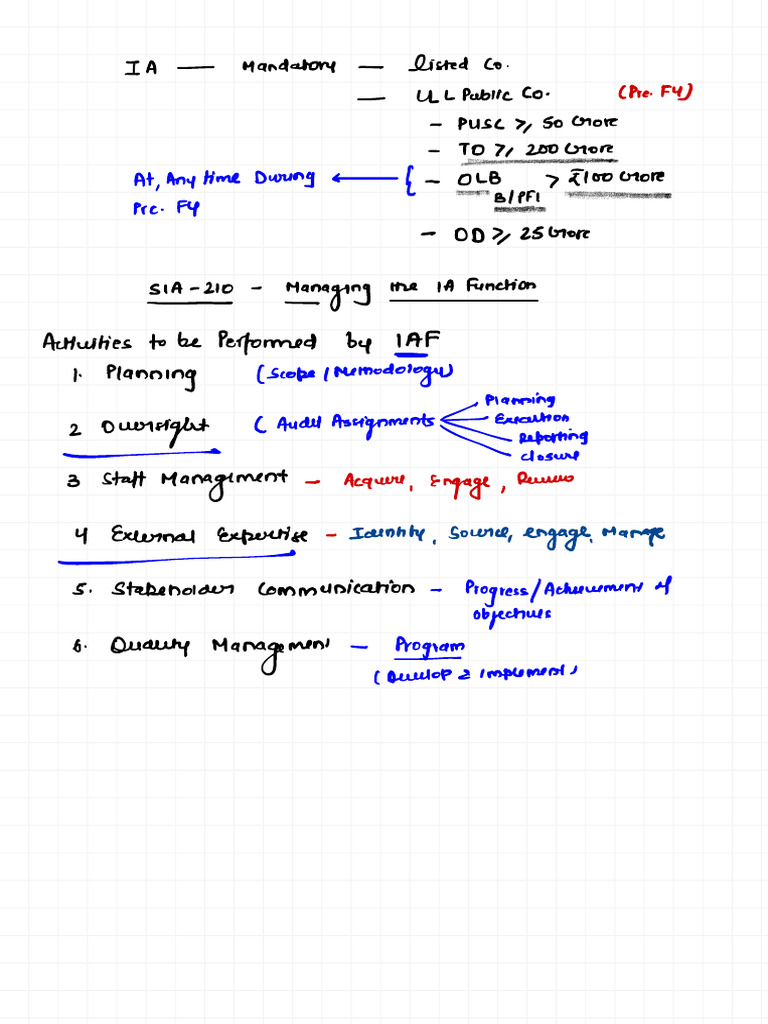 IA — Mandatory — Listed Co.
— ULL Public Co. (Pre. FY)
- PUSC ⩾ 50 Crore
- TO ⩾ 200 Crore
At, Any time During ← { - OLB > ₹100 Crore
Pre. FY B/PFI
- OD ⩾ 25 Crore
SIA-210 - Managing the IA Function
Activities to be Performed by IAF
1. Planning (Scope / Methodology)
2 Oversight ( Audit Assignments
Planning
Execution
Reporting
Closure
3 Staff Management - Acquire, Engage, Review
4 External Expertise - Identity, Source, engage, Manage
5. Stakeholder Communication - Progress/Achievement of
objectives
6. Quality Management - Program
(Develop & implement)